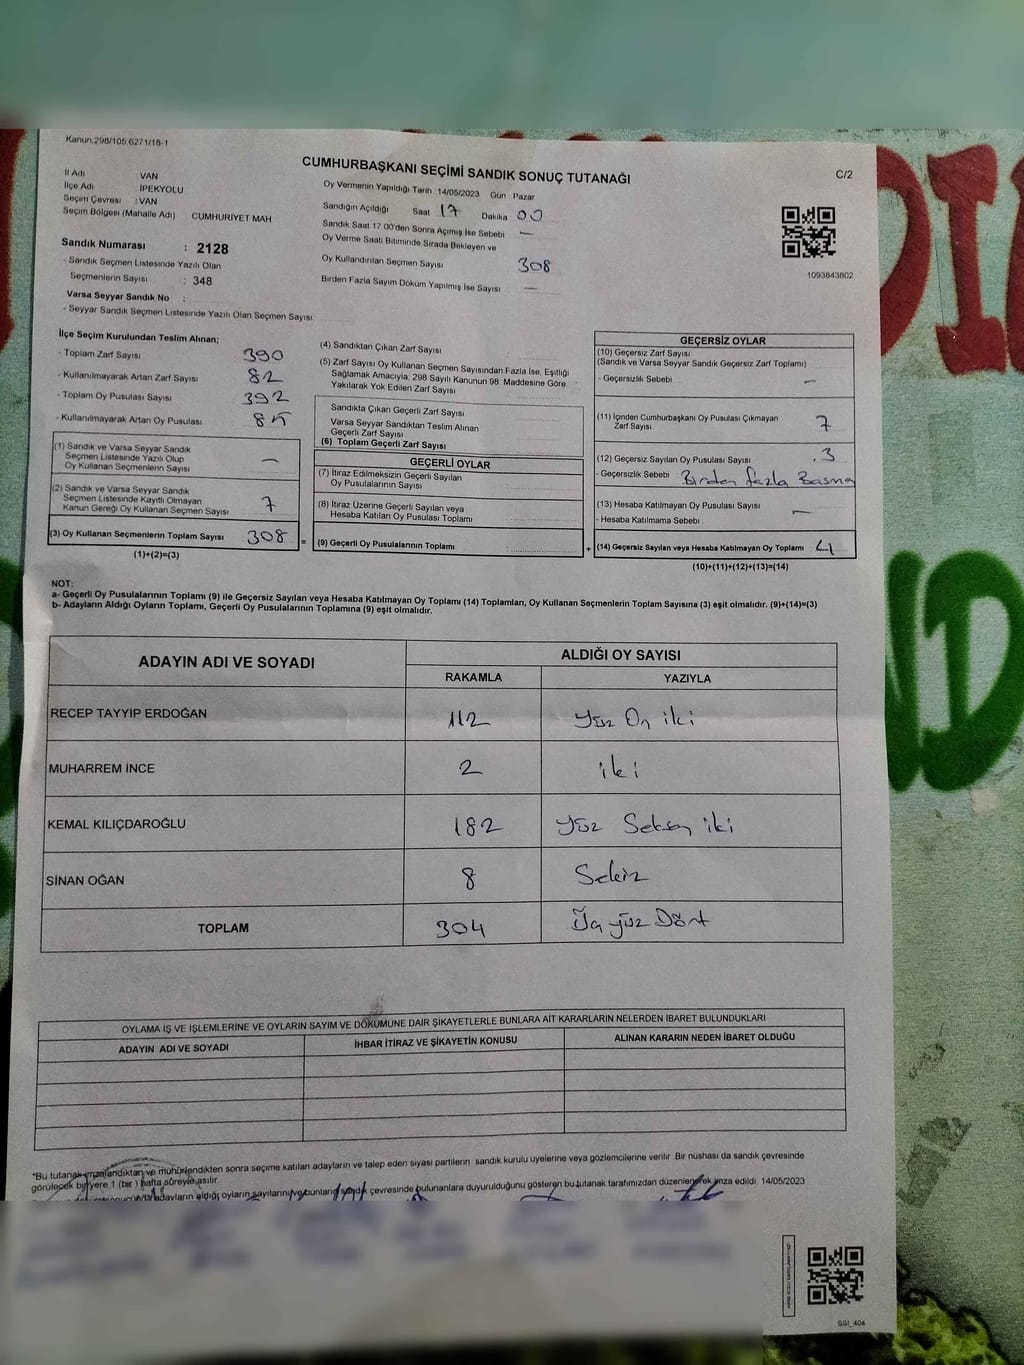 Kanun 298/105 6271/18-1
CUMHURBAŞKANI SEÇİMİ SANDIK SONUÇ TUTANAĞI
C/2
İl Adı VAN
İlçe Adı İPEKYOLU
Seçim Çevresi : VAN
Seçim Bölgesi (Mahalle Adı) CUMHURİYET MAH
Sandık Numarası : 2128
- Sandık Seçmen Listesinde Yazılı Olan
Seçmenlerin Sayısı : 348
Varsa Seyyar Sandık No :
- Seyyar Sandık Seçmen Listesinde Yazılı Olan Seçmen Sayısı
Oy Vermenin Yapıldığı Tarih 14/05/2023 Gün Pazar
Sandığın Açıldığı Saat 17 Dakika 00
Sandık Saat 17 00'den Sonra Açılmış İse Sebebi —
Oy Verme Saati Bitiminde Sırada Bekleyen ve
Oy Kullandırılan Seçmen Sayısı 308
Birden Fazla Sayım Döküm Yapılmış İse Sayısı —
1093843802
İlçe Seçim Kurulundan Teslim Alınan;
- Toplam Zarf Sayısı 390
- Kullanılmayarak Artan Zarf Sayısı 82
- Toplam Oy Pusulası Sayısı 392
- Kullanılmayarak Artan Oy Pusulası 85
(1) Sandık ve Varsa Seyyar Sandık
Seçmen Listesinde Yazılı Olup
Oy Kullanan Seçmenlerin Sayısı —
(2) Sandık ve Varsa Seyyar Sandık
Seçmen Listesinde Kayıtlı Olmayan
Kanun Gereği Oy Kullanan Seçmen Sayısı 7
(3) Oy Kullanan Seçmenlerin Toplam Sayısı 308
(1)+(2)=(3)
(4) Sandıktan Çıkan Zarf Sayısı
(5) Zarf Sayısı Oy Kullanan Seçmen Sayısından Fazla İse, Eşitliği
Sağlamak Amacıyla, 298 Sayılı Kanunun 98. Maddesine Göre
Yakılarak Yok Edilen Zarf Sayısı
Sandıkta Çıkan Geçerli Zarf Sayısı
Varsa Seyyar Sandıktan Teslim Alınan
Geçerli Zarf Sayısı
(6) Toplam Geçerli Zarf Sayısı
GEÇERLİ OYLAR
(7) İtiraz Edilmeksizin Geçerli Sayılan
Oy Pusulalarının Sayısı
(8) İtiraz Üzerine Geçerli Sayılan veya
Hesaba Katılan Oy Pusulası Toplamı
= (9) Geçerli Oy Pusulalarının Toplamı
GEÇERSİZ OYLAR
(10) Geçersiz Zarf Sayısı
(Sandık ve Varsa Seyyar Sandık Geçersiz Zarf Toplamı)
- Geçersizlik Sebebi —
(11) İçinden Cumhurbaşkanı Oy Pusulası Çıkmayan
Zarf Sayısı 7
(12) Geçersiz Sayılan Oy Pusulası Sayısı 3
- Geçersizlik Sebebi Birden fazla Basma
(13) Hesaba Katılmayan Oy Pusulası Sayısı —
- Hesaba Katılmama Sebebi
+ (14) Geçersiz Sayılan veya Hesaba Katılmayan Oy Toplamı 4
(10)+(11)+(12)+(13)=(14)
NOT:
a- Geçerli Oy Pusulalarının Toplamı (9) ile Geçersiz Sayılan veya Hesaba Katılmayan Oy Toplamı (14) Toplamları, Oy Kullanan Seçmenlerin Toplam Sayısına (3) eşit olmalıdır. (9)+(14)=(3)
b- Adayların Aldığı Oyların Toplamı, Geçerli Oy Pusulalarının Toplamına (9) eşit olmalıdır.
ADAYIN ADI VE SOYADI
ALDIĞI OY SAYISI
RAKAMLA YAZIYLA
RECEP TAYYİP ERDOĞAN 112 Yüz On iki
MUHARREM İNCE 2 iki
KEMAL KILIÇDAROĞLU 182 Yüz Seksen iki
SİNAN OĞAN 8 Sekiz
TOPLAM 304 Üç yüz Dört
OYLAMA İŞ VE İŞLEMLERİNE VE OYLARIN SAYIM VE DÖKÜMÜNE DAİR ŞİKAYETLERLE BUNLARA AİT KARARLARIN NELERDEN İBARET BULUNDUKLARI
ADAYIN ADI VE SOYADI İHBAR İTİRAZ VE ŞİKAYETİN KONUSU ALINAN KARARIN NEDEN İBARET OLDUĞU
"Bu tutanak imzalandıktan ve mühürlendikten sonra seçime katılan adayların ve talep eden siyasi partilerin sandık kurulu üyelerine veya gözlemcilerine verilir. Bir nüshası da sandık çevresinde
görülecek bir yere 1 (bir) hafta süreyle asılır.
adayların aldığı oyların sayılarını ve bunların sandık çevresinde bulunanlara duyurulduğunu gösteren bu tutanak tarafımızdan düzenlenerek imza edildi. 14/05/2023
SSI_404